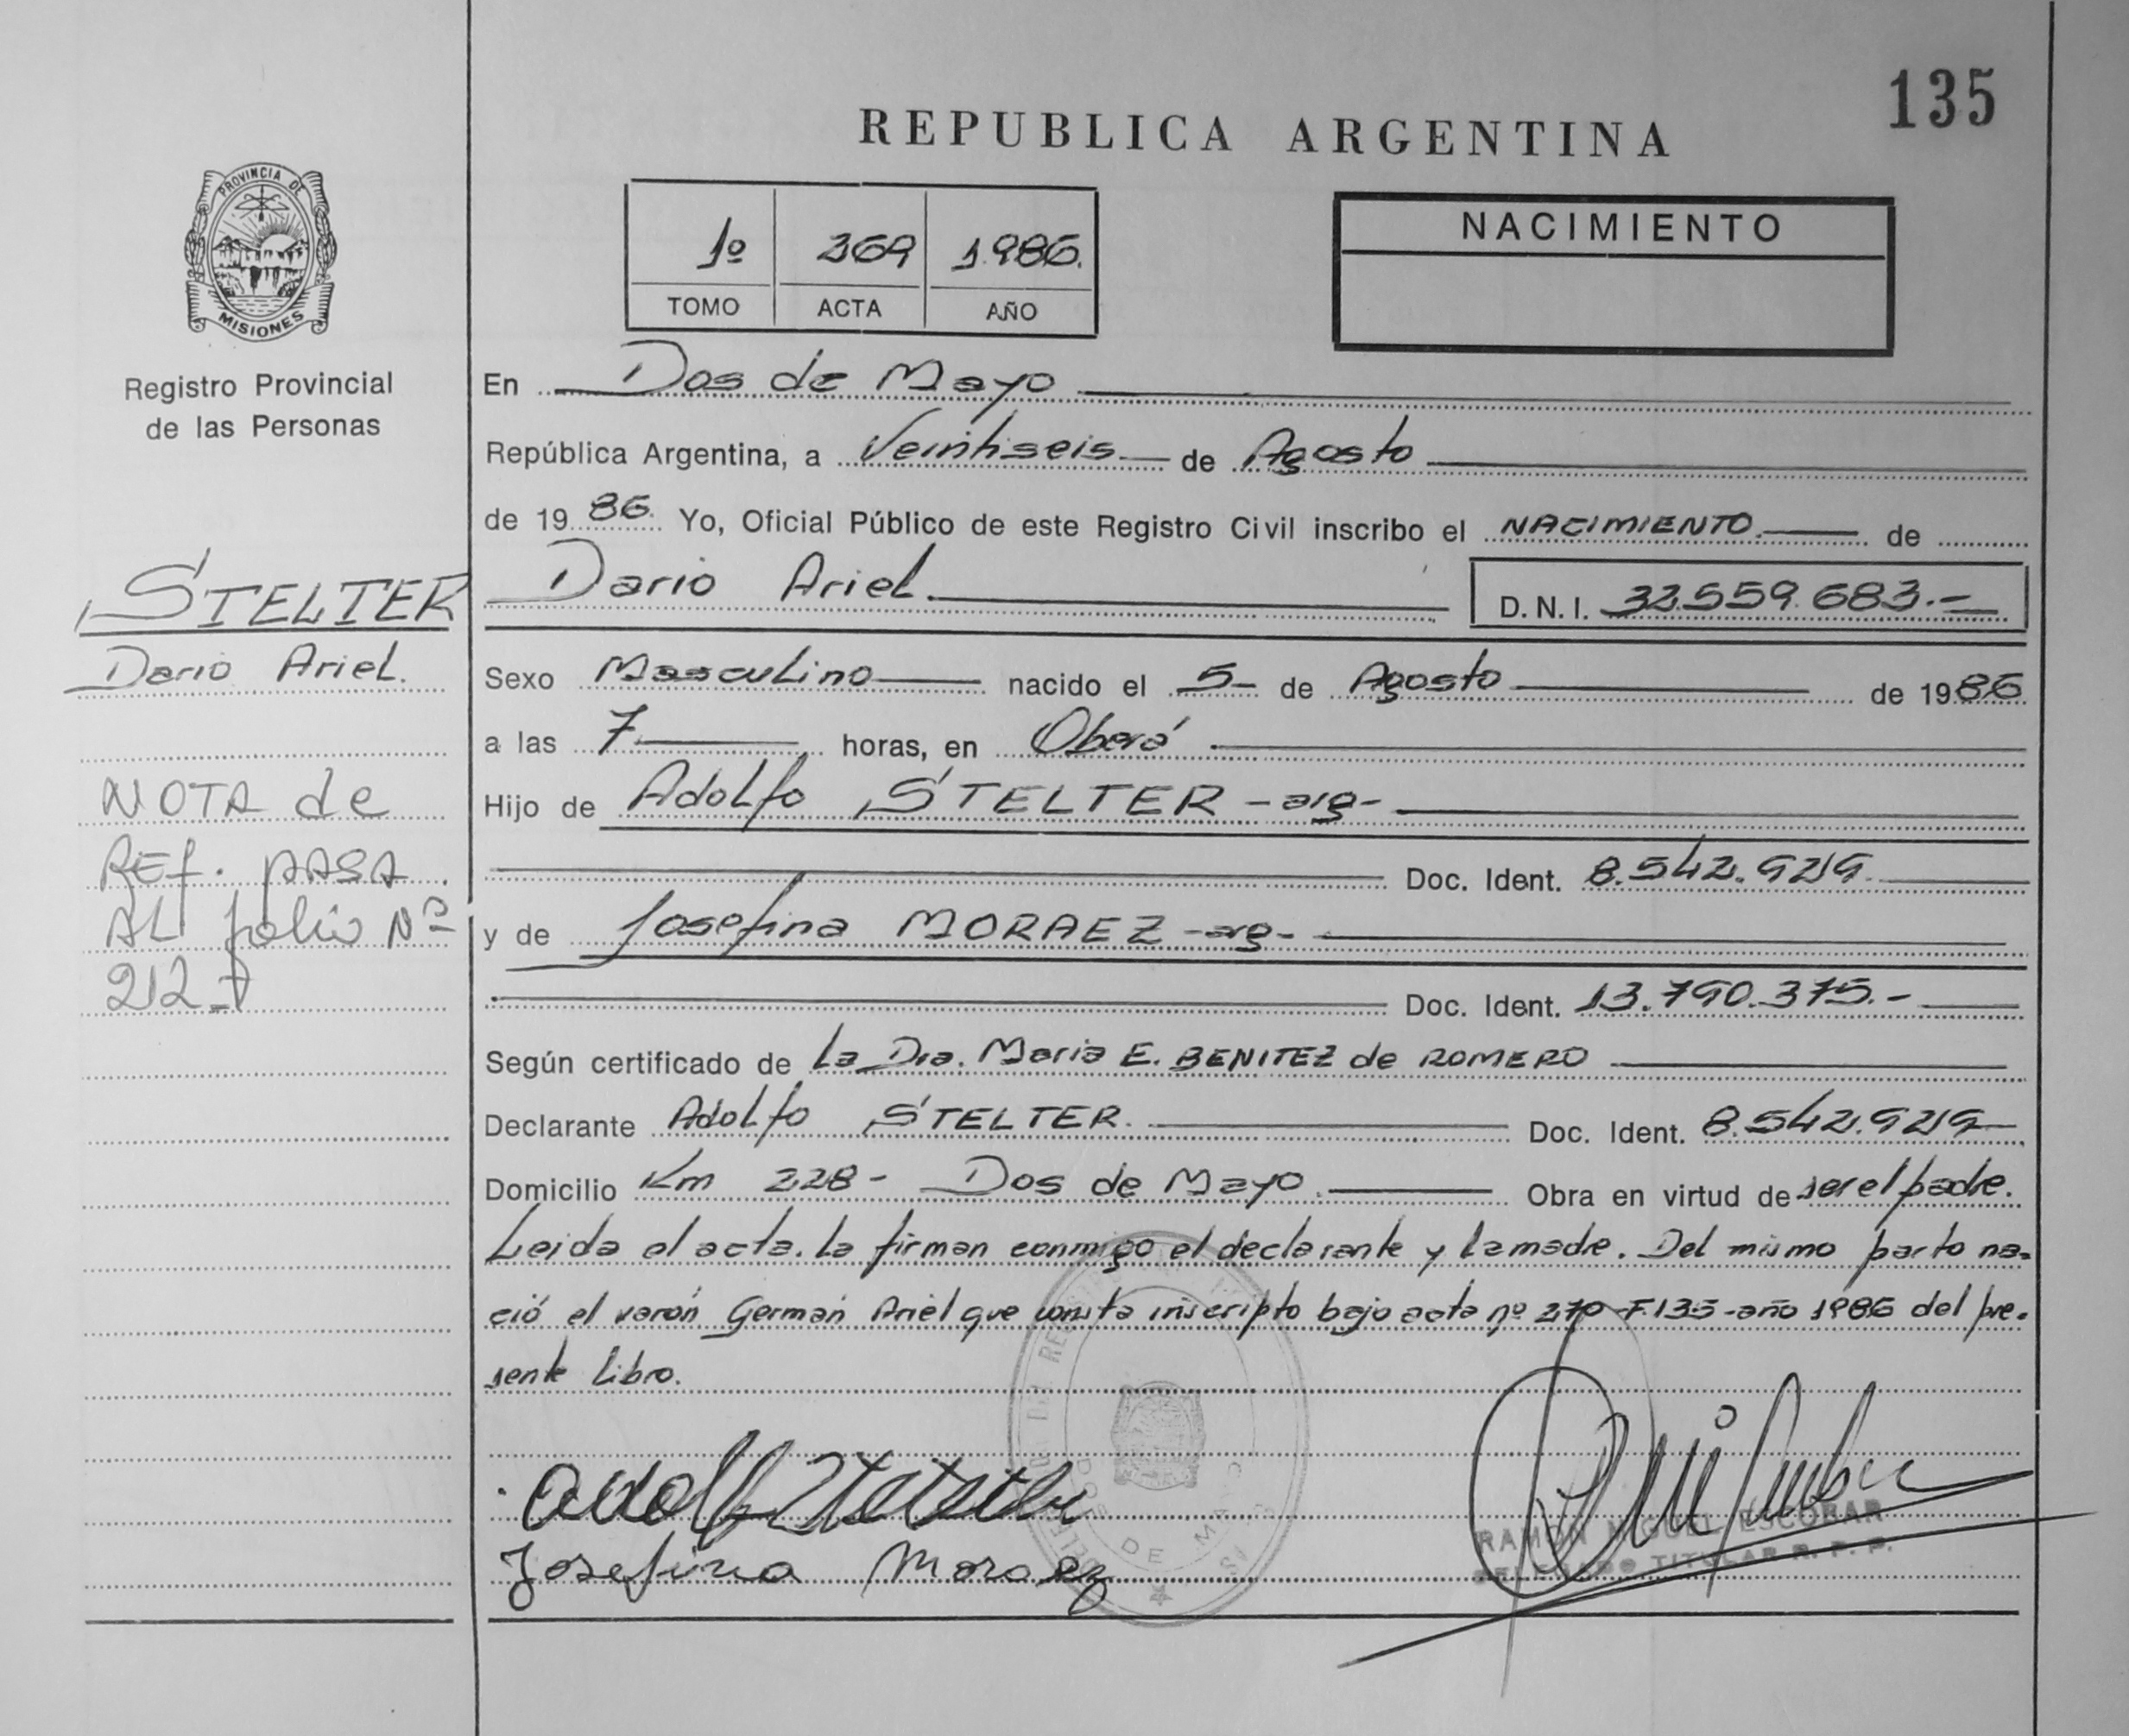 135
REPUBLICA ARGENTINA
PROVINCIA DE
MISIONES
Registro Provincial
de las Personas
1º 269 1.986.
TOMO ACTA AÑO
NACIMIENTO
En Dos de Mayo
República Argentina, a Veintiseis de Agosto
de 19 86. Yo, Oficial Público de este Registro Civil inscribo el NACIMIENTO. de
Dario Ariel. D. N. I. 32.559.683.-
STELTER
Dario Ariel.
NOTA de
REf. pASA
AL folio Nº
212
Sexo Masculino nacido el 5- de Agosto de 1986
a las 7 horas, en Oberá
Hijo de Adolfo STELTER -arg-
Doc. Ident. 8.542.929
y de Josefina MORAEZ -arg-
Doc. Ident. 13.790.375.-
Según certificado de la Dra. Maria E. BENITEZ de ROMERO
Declarante Adolfo STELTER. Doc. Ident. 8.542.929
Domicilio Km 228- Dos de Mayo. Obra en virtud de ser el padre.
Leida el acta. la firman conmigo el declarante y la madre. Del mismo parto na-
ció el varón Germán Ariel que consta inscripto bajo acta nº 270-F.135-año 1986 del pre-
sente libro.
Adolf Stelter
Josefina Moraez
DOS DE MAYO
RAMON MIGUEL ESCOBAR
DELEGADO TITULAR R. P. P.